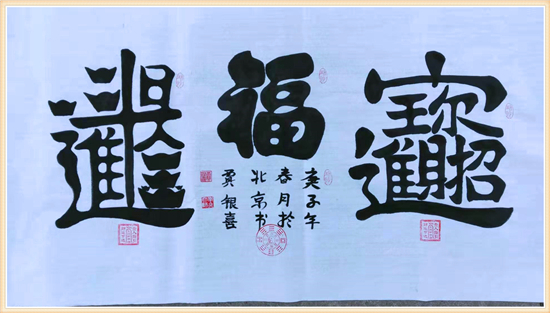 招財進寶
福
庚子年
春月於
北京书
贾根喜
日進斗金